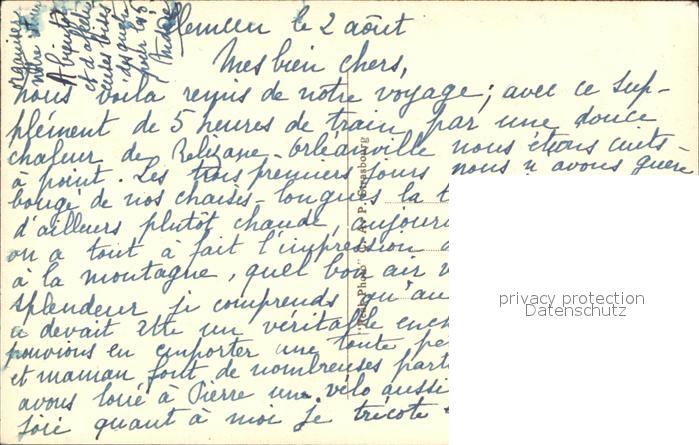 Tlemcen le 2 août
Mes bien chers,
nous voilà remis de notre voyage; avec ce sup-
plément de 5 heures de train par une douce
chaleur de Relizane - Orléanville nous étions cuits
à point. Les trois premiers jours nous n'avons guère
bougé de nos chaises-longues la t
d'ailleurs plutôt chaude, aujourd
on a tout à fait l'impression d
à la montagne, quel bon air
splendeur je comprends qu'au
devait être un véritable ench
pouvions en emporter une toute pe
et maman font de nombreuses part
avons loué à Pierre un vélo aussi
joie quant à moi je tricote
A bientôt
et d'affec
André
"Real-Photo" C. A. P. Strasbourg
privacy protection
Datenschutz